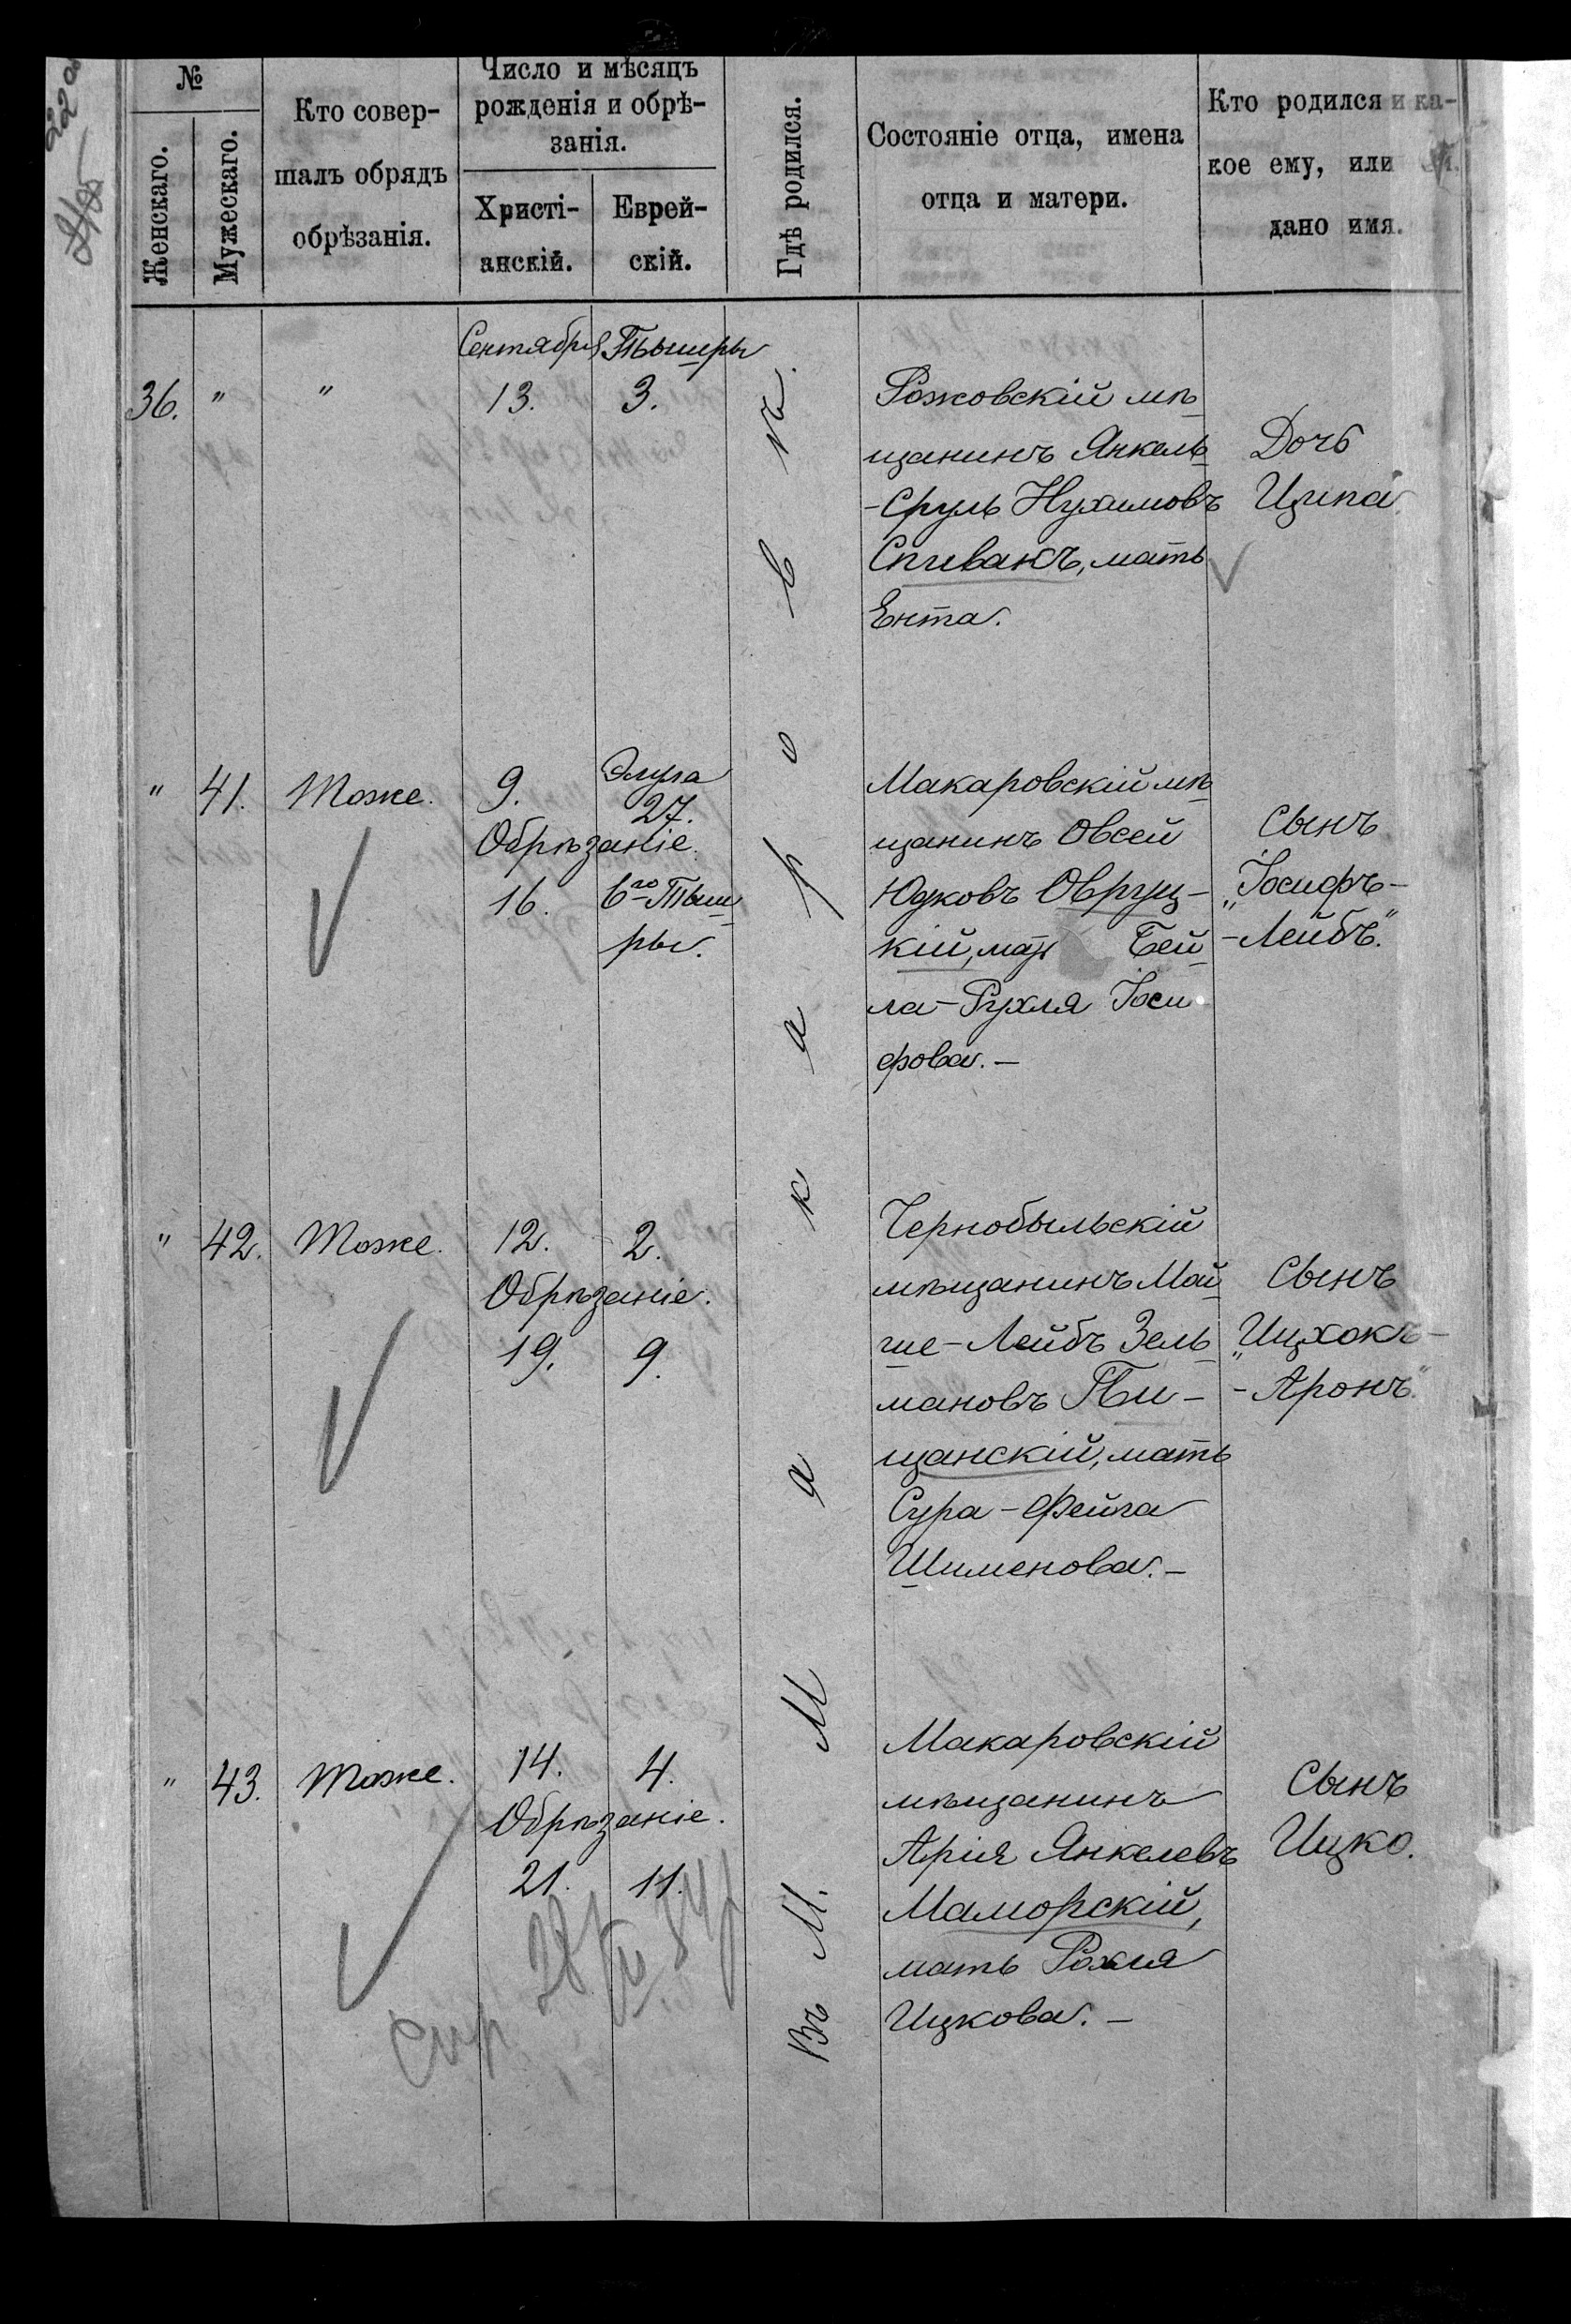 №
Женскаго.
Мужескаго.
Кто совер-
шалъ обрядъ
обрѣзанія.
Число и мѣсяцъ
рожденія и обрѣ-
занія.
Христі-
анскій.
Еврей-
скій.
Гдѣ родился.
Состояніе отца, имена
отца и матери.
Кто родился и ка-
кое ему, или
дано имя.
Въ М. Макаровъ.
Сентября Тышры
36. " " 13. 3.
Рожовскій мѣ
щанинъ Янкель
-Сруль Нухимовъ
Спивакъ, мать
Ента.
Дочь
Ципа
" 41. Тоже. 9. Элула
27.
Обрѣзаніе.
16. 6го Тыш
ры.
Макаровскій мѣ
щанинъ Овсей
Юдковъ Овруц-
кій, мать Бей
ла-Рухля Іоси
фова. —
Сынъ
„Іосифъ-
-Лейбъ."
" 42. Тоже. 12. 2.
Обрѣзаніе.
19. 9.
Чернобыльскій
мѣщанинъ Мой
ше-Лейбъ Зель
мановъ Пи-
щанскій, мать
Сура-Фейга
Шименова. —
Сынъ
„Ицхокъ-
-Аронъ."
" 43. Тоже. 14. 4.
Обрѣзаніе.
21. 11.
Макаровскій
мѣщанинъ
Арія Янкелевъ
Маморскій,
мать Рохля
Ицкова. —
Сынъ
Ицко.